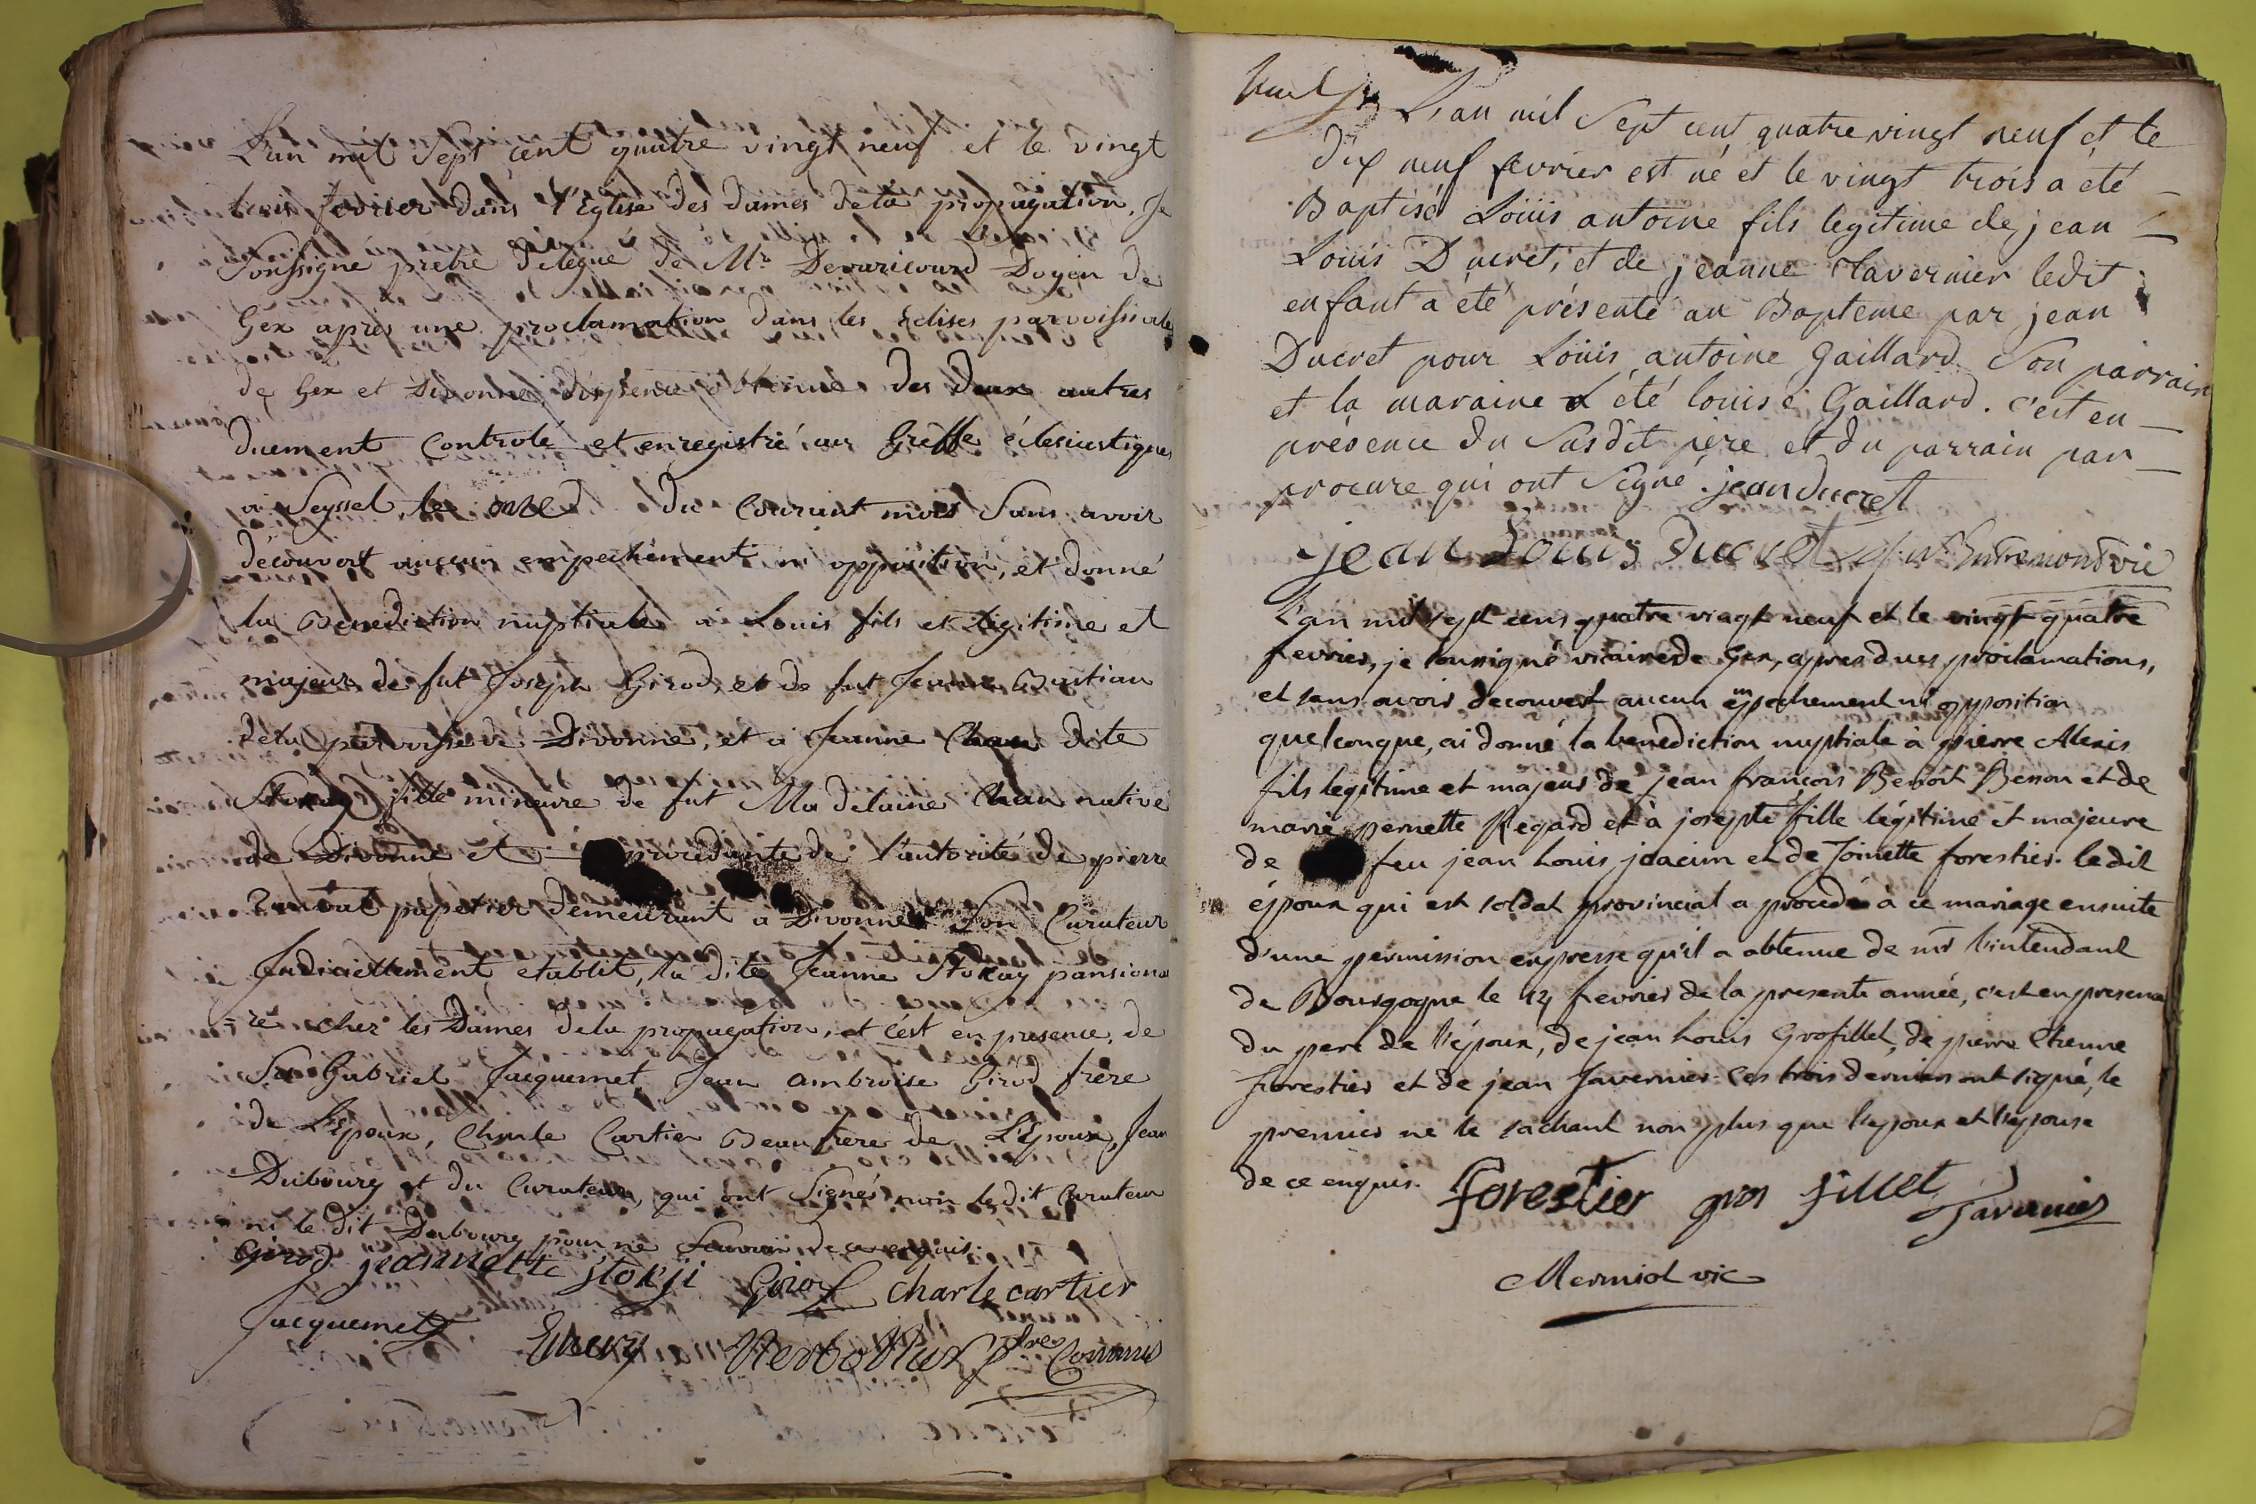 L'an mil Sept cent quatre vingt neuf et le vingt
trois fevrier dans l'Eglise des Dames de la propagation, Je
Soussigné prêtre délégué de Mr Devaricourd Doyen de
Gex apres une proclamation dans les Eclises parroissiales
de Gex et Divonne, dispense obtenue des deux autres
duement Controlé et enregistré au Greffe éclesiastique
à Seyssel le onze du Courant mois Sans avoir
découvert aucun empechement ni opposition, et donné
la Benediction nuptiale à Louis fils et legitime et
majeur de fut Joseph Girod, et de fut Jeanne Bastian
de la parroisse de Divonne, et à Jeanne Chan dite
Stokay fille mineure de fut Madelaine Chan native
de Divonne et procedante de l'autorité de pierre
papetier demeurant a Divonne Son Curateur
Judiciellement etablit, la dite Jeanne Stokay pansiona
=re cher les Dames de la propagation, et c'est en presence de
Sr Gabriel Jacquemet Jean ambroise Girod frère
de L'Epoux, Charle Cartier Beaufrere de L'Epoux, Jean
Dubourg et du Curateur, qui ont Signés non le dit Curateur
ni le dit Dubourg pour ne Scavoir de ce enquis.
Girod jeannette stokji Girod charle cartier
Jacquemet Emery ptre Commis
L'an mil Sept cent quatre vingt neuf et le
dix neuf fevrier est né et le vingt trois a été
Baptisé Loüis antoine fils legitime de jean
Loüis Ducret, et de jeanne Tavernier ledit
enfant a été présenté au Bapteme par jean
Ducret pour Loüis antoine Gaillard Son parrain
et la maraine a été louise Gaillard. c'est en
présence du Susdit père et du parrain par
procure qui ont Signé. jean ducret
jean Louis Ducret vic
L'an mil sept cens quatre vingt neuf et le vingt quatre
fevrier, je soussigné vicaire de Gex, apres dues proclamations,
et sans avoir decouvert aucun empechement ni opposition
quelconque, ai donné la benediction nuptiale à pierre Alexis
fils legitime et majeur de jean françois Benoit Besson et de
marie pernette Regard et à josephte fille légitime et majeure
de feu jean Louis joacim et de Toinette forestier. ledit
époux qui est soldat provincial a procedé à ce mariage ensuite
d'une permission expresse qu'il a obtenue de mr l'intendant
de Bourgogne le 14 fevrier de la presente année, c'est en presence
du pere de l'époux, de jean Louis Grofillet, de pierre Etienne
forestier et de jean Tavernier. Ces trois derniers ont signé, le
premier ne le sachant non plus que l'epoux et l'epouse
de ce enquis. forestier gros fillet Tavernier
Mermiol vic